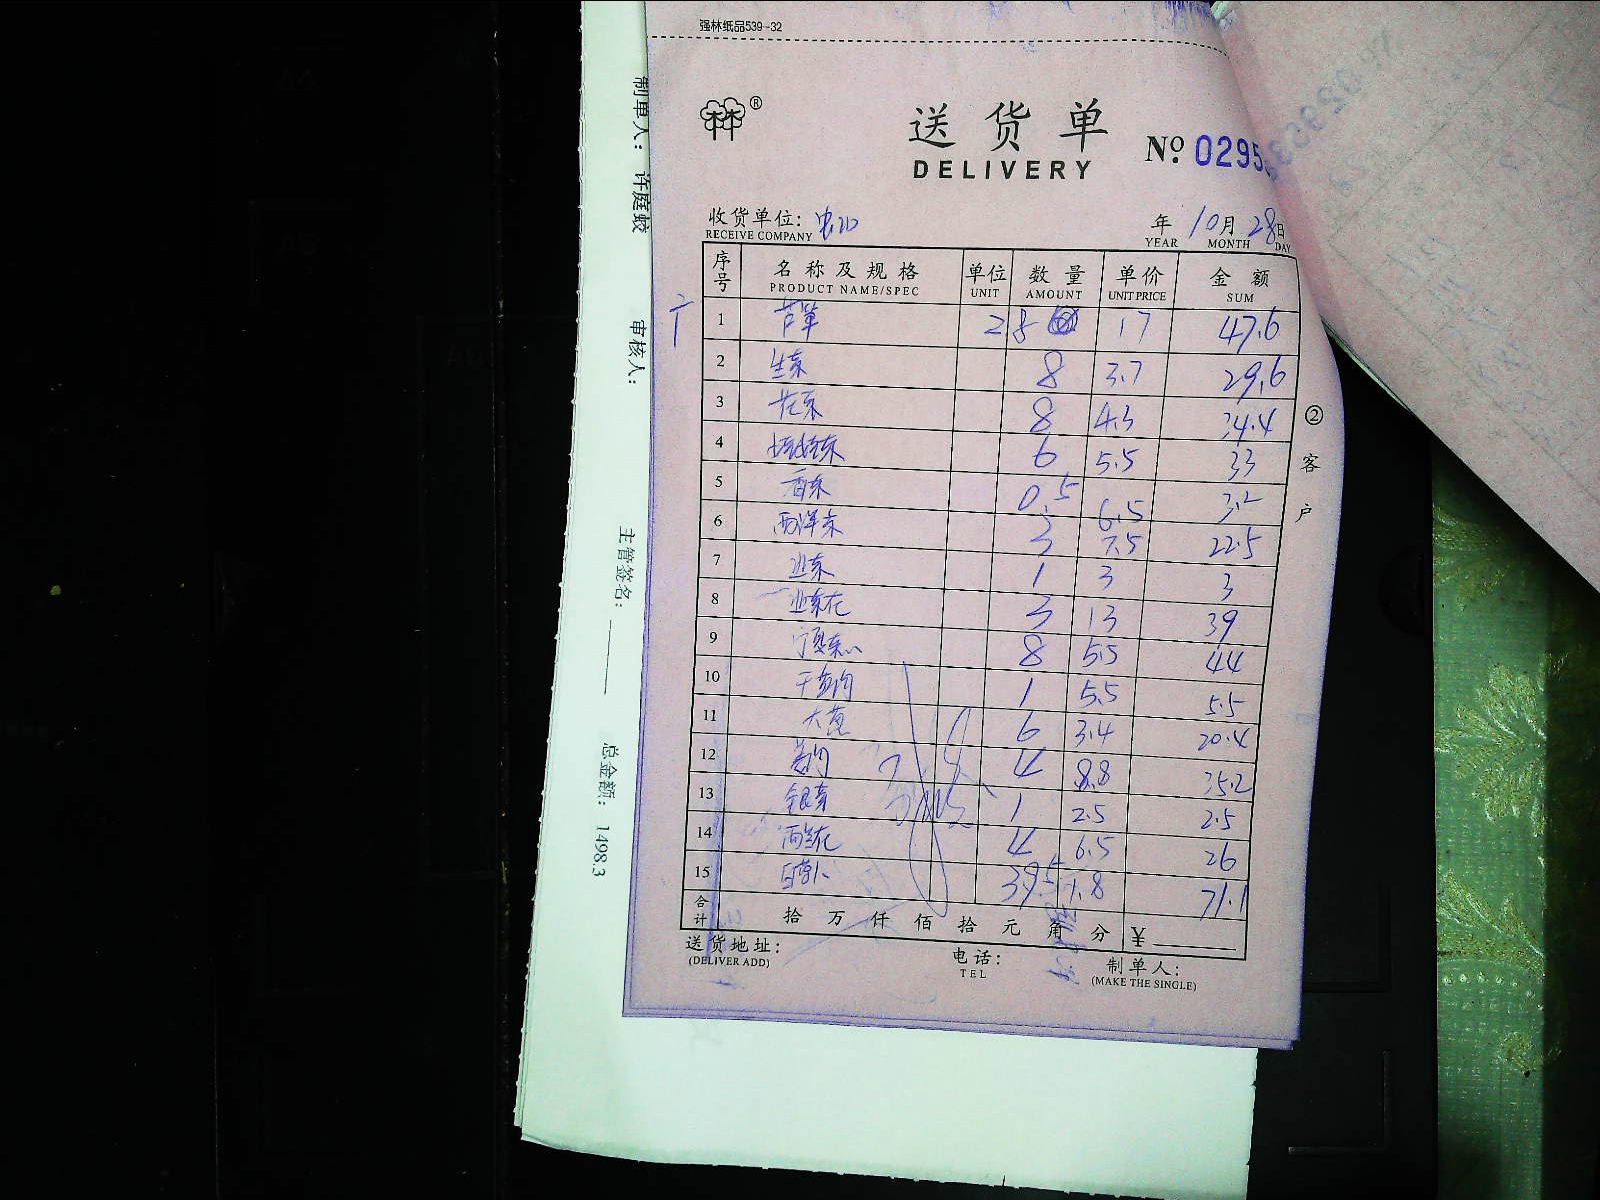 强林纸品539-32
林®
送货单
DELIVERY
Nº 0295
收货单位:
RECEIVE COMPANY
年 10月 28日
YEAR MONTH DAY
序号 名称及规格 单位 数量 单价 金额
PRODUCT NAME/SPEC UNIT AMOUNT UNIT PRICE SUM
1 2.8 17 47.6
2 生菜 8 3.7 29.6
3 花菜 8 4.3 34.4
4 娃娃菜 6 5.5 33
5 香菜 0.5 6.5 3.2
6 西洋菜 3 7.5 22.5
7 1 3 3
8 3 13 39
9 宁夏菜心 8 5.5 44
10 1 5.5 5.5
11 大葱 6 3.4 20.4
12 4 8.8 35.2
13 银芽 1 2.5 2.5
14 西兰花 4 6.5 26
15 白萝卜 39.5 1.8 71.1
合计 拾 万 仟 佰 拾 元 角 分 ¥
送货地址:
(DELIVER ADD)
电话:
TEL
制单人:
(MAKE THE SINGLE)
②客户
制单人: 许庭蛟
审核人:
主管签名:
总金额: 1498.3